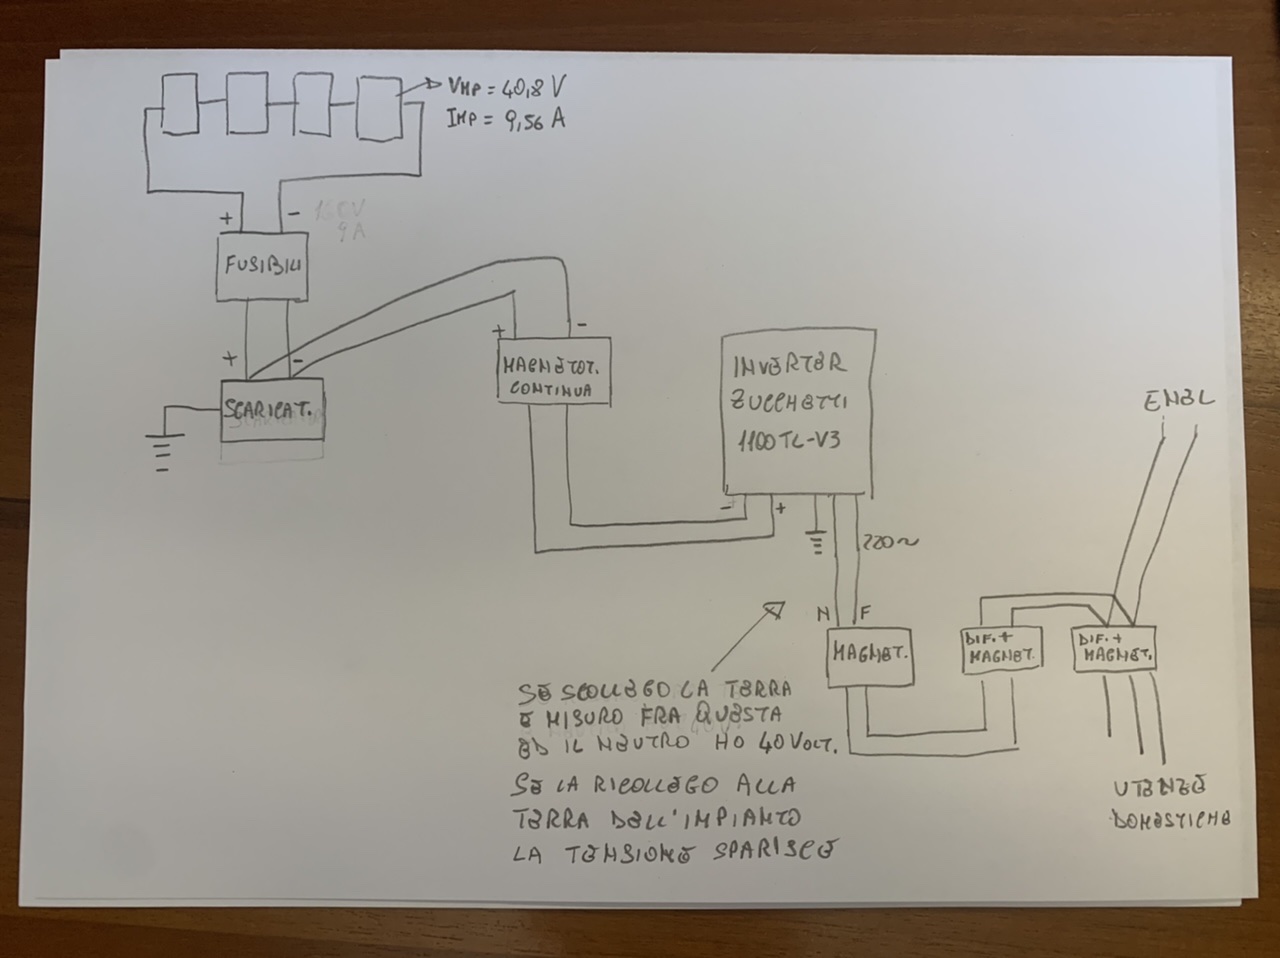 VMP = 40,8 V
IMP = 9,56 A
+ -
9A
FUSIBILI
+ -
SCARICAT.
+ -
MAGNETOT.
CONTINUA
INVERTER
ZUCCHETTI
1100TL-V3
- +
220~
ENEL
N F
MAGNET.
DIF. +
MAGNET.
DIF. +
MAGNET.
SE SCOLLEGO LA TERRA
E MISURO FRA QUESTA
ED IL NEUTRO HO 40 VOLT.
SE LA RICOLLEGO ALLA
TERRA DELL'IMPIANTO
LA TENSIONE SPARISCE
UTENZE
DOMESTICHE